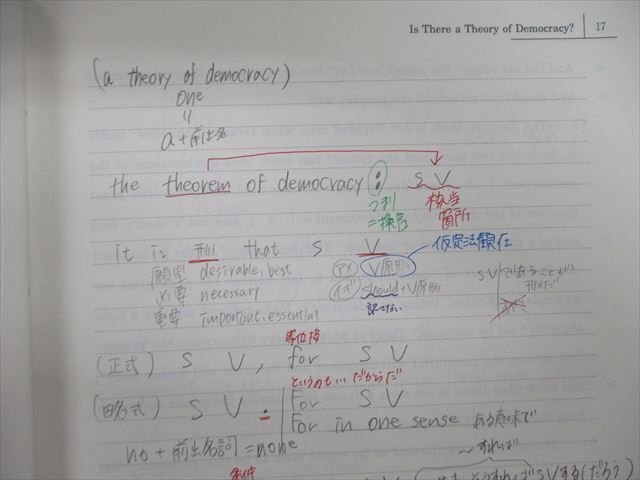 Is There a Theory of Democracy? 17
(a theory of democracy)
one
=
a+前出名
the theorem of democracy : S V
つまり 該当
=換言 箇所
It is 形 that S V 仮定法現在
願望 desirable, best (アメ) V原形
必要 necessary (イギ) should+V原形
重要 important, essential 訳さない
SVであることが
形だ
等位接
(正式) S V, for S V
というのも…だからだ
(略式) S V . For S V
For in one sense ある意味で
no+前出名詞=none
〜すれば
条件